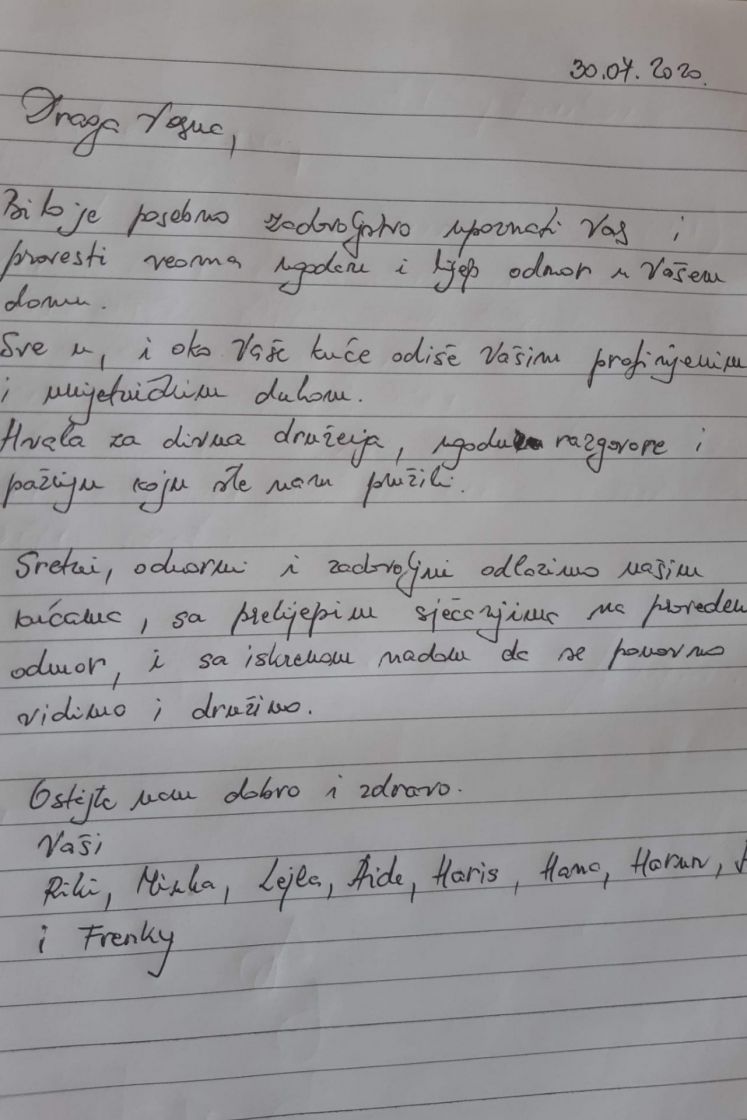 30.07.2020.
Draga Vesna,
Bilo je posebno zadovoljstvo upoznati Vas i
provesti veoma ugodan i lijep odmor u Vašem
domu.
Sve u, i oko Vaše kuće odiše Vašim profinjenim
i umjetničkim duhom.
Hvala za divna druženja, ugodne razgovore i
pažnju koju ste nam pružili.
Sretni, odmorni i zadovoljni odlazimo našim
kućama, sa prelijepim sjećanjima na proveden
odmor, i sa iskrenom nadom da se ponovno
vidimo i družimo.
Ostajte nam dobro i zdravo.
Vaši
Riki, Mirha, Lejla, Aida, Haris, Hana, Harun,
i Frenky